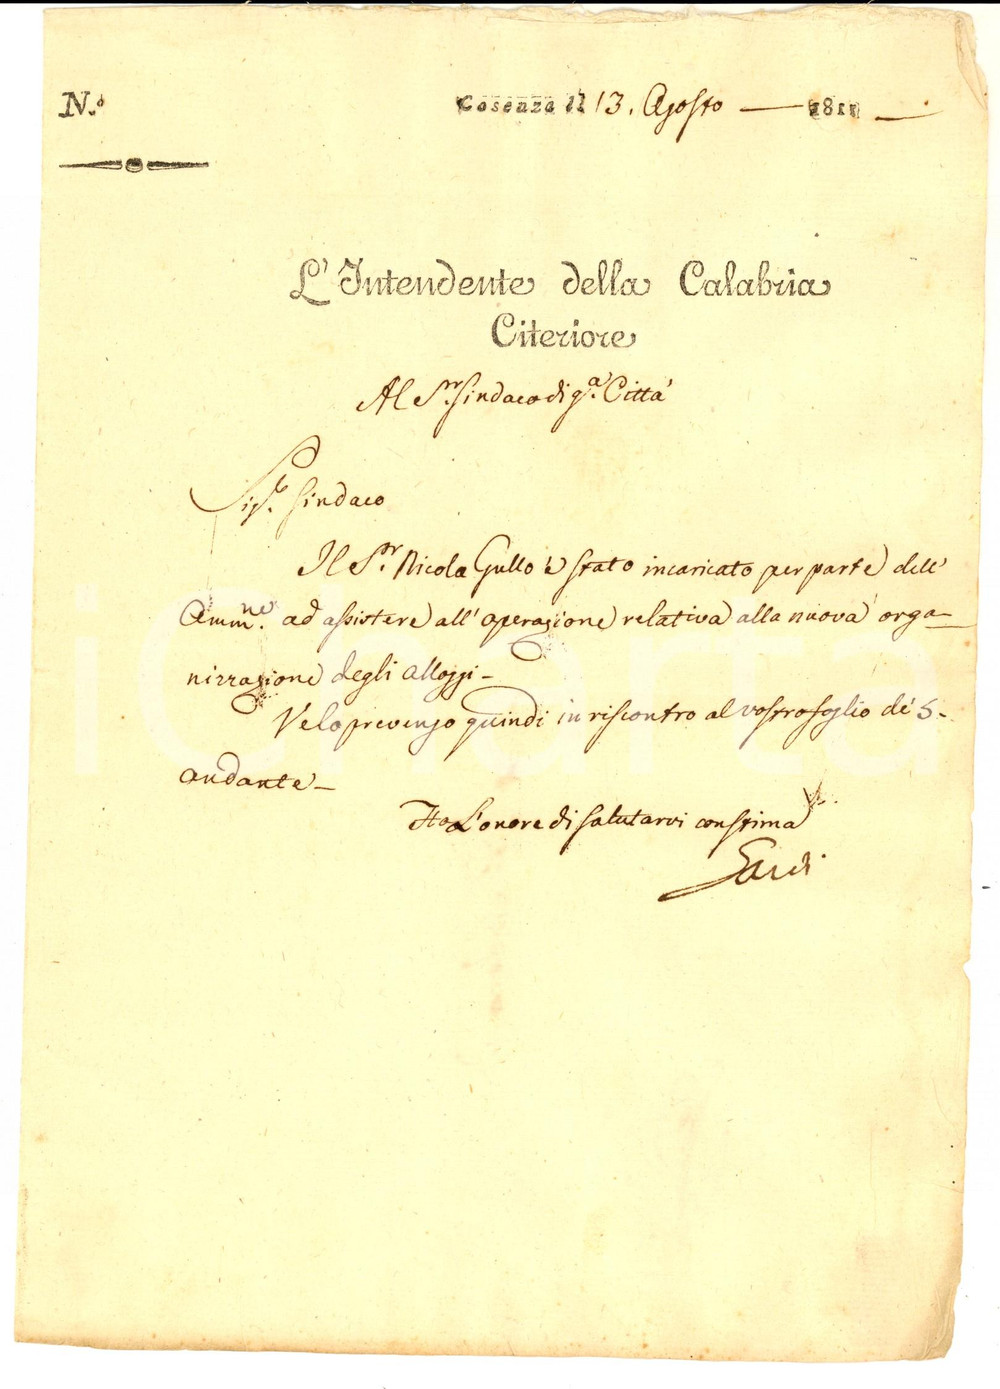 N.º Cosenza li 13. Agosto — 1811 —
L'Intendente della Calabria
Citeriore
Al S.r Sindaco di q.a Città
Sig.r Sindaco
Il S.r Nicola Gullo è stato incaricato per parte dell'
Amm.ne ad assistere all'operazione relativa alla nuova orga-
nizzazione degli alloggi -
Ve lo prevengo quindi in riscontro al vostro foglio de' 5.
andante -
Ho L'onore di salutarvi con stima